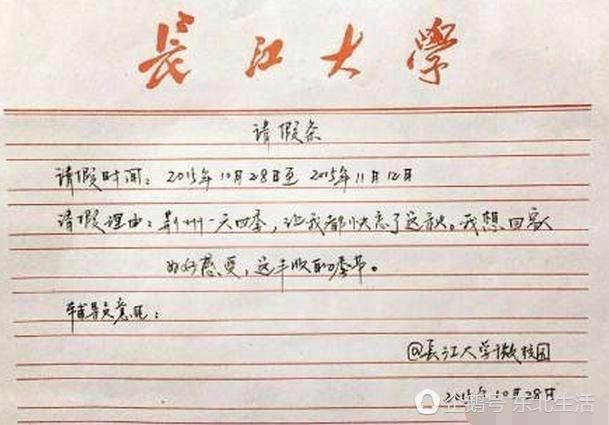 長江大學
请假条
请假时间：2015年10月28日至2015年11月12日
请假理由：荆州一天四季，让我都快忘了这秋。我想回家
好好感受，这丰收的季节。
辅导员意见：
@長江大学微校园
2015年10月28日
企鹅号 东北生活